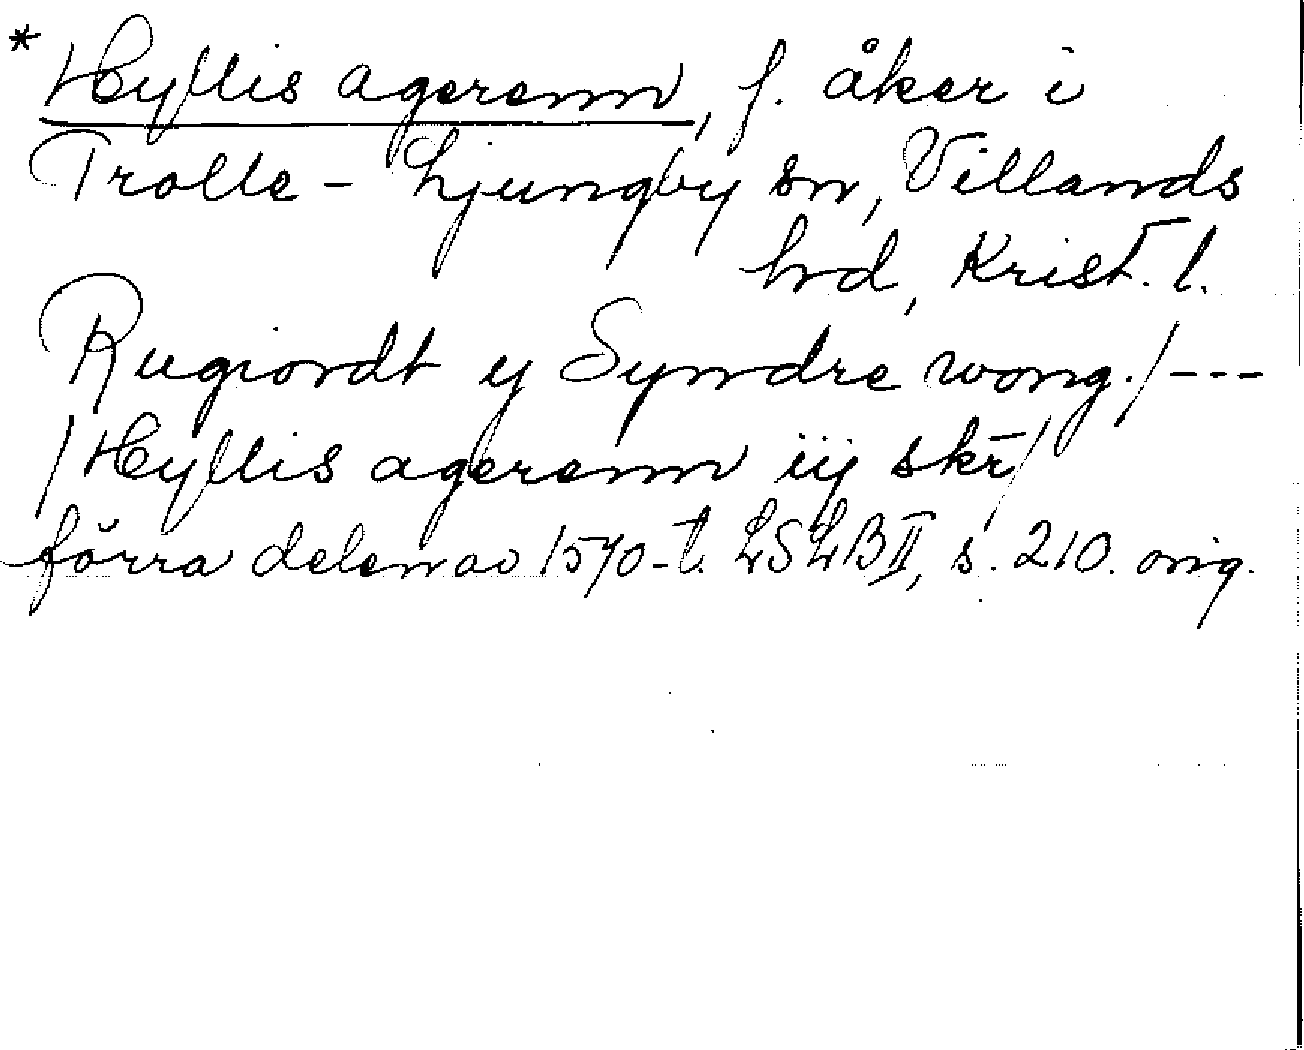 * Hyllis agerenn, f. åker i
Trolle-Ljungby sn, Villands
hd, Krist. l.
Rugiordt y Syndre wong. / ---
/ Hyllis agerenn iij skr̄ /
förra delen av 1570-t. LSLB II, s. 210. orig.